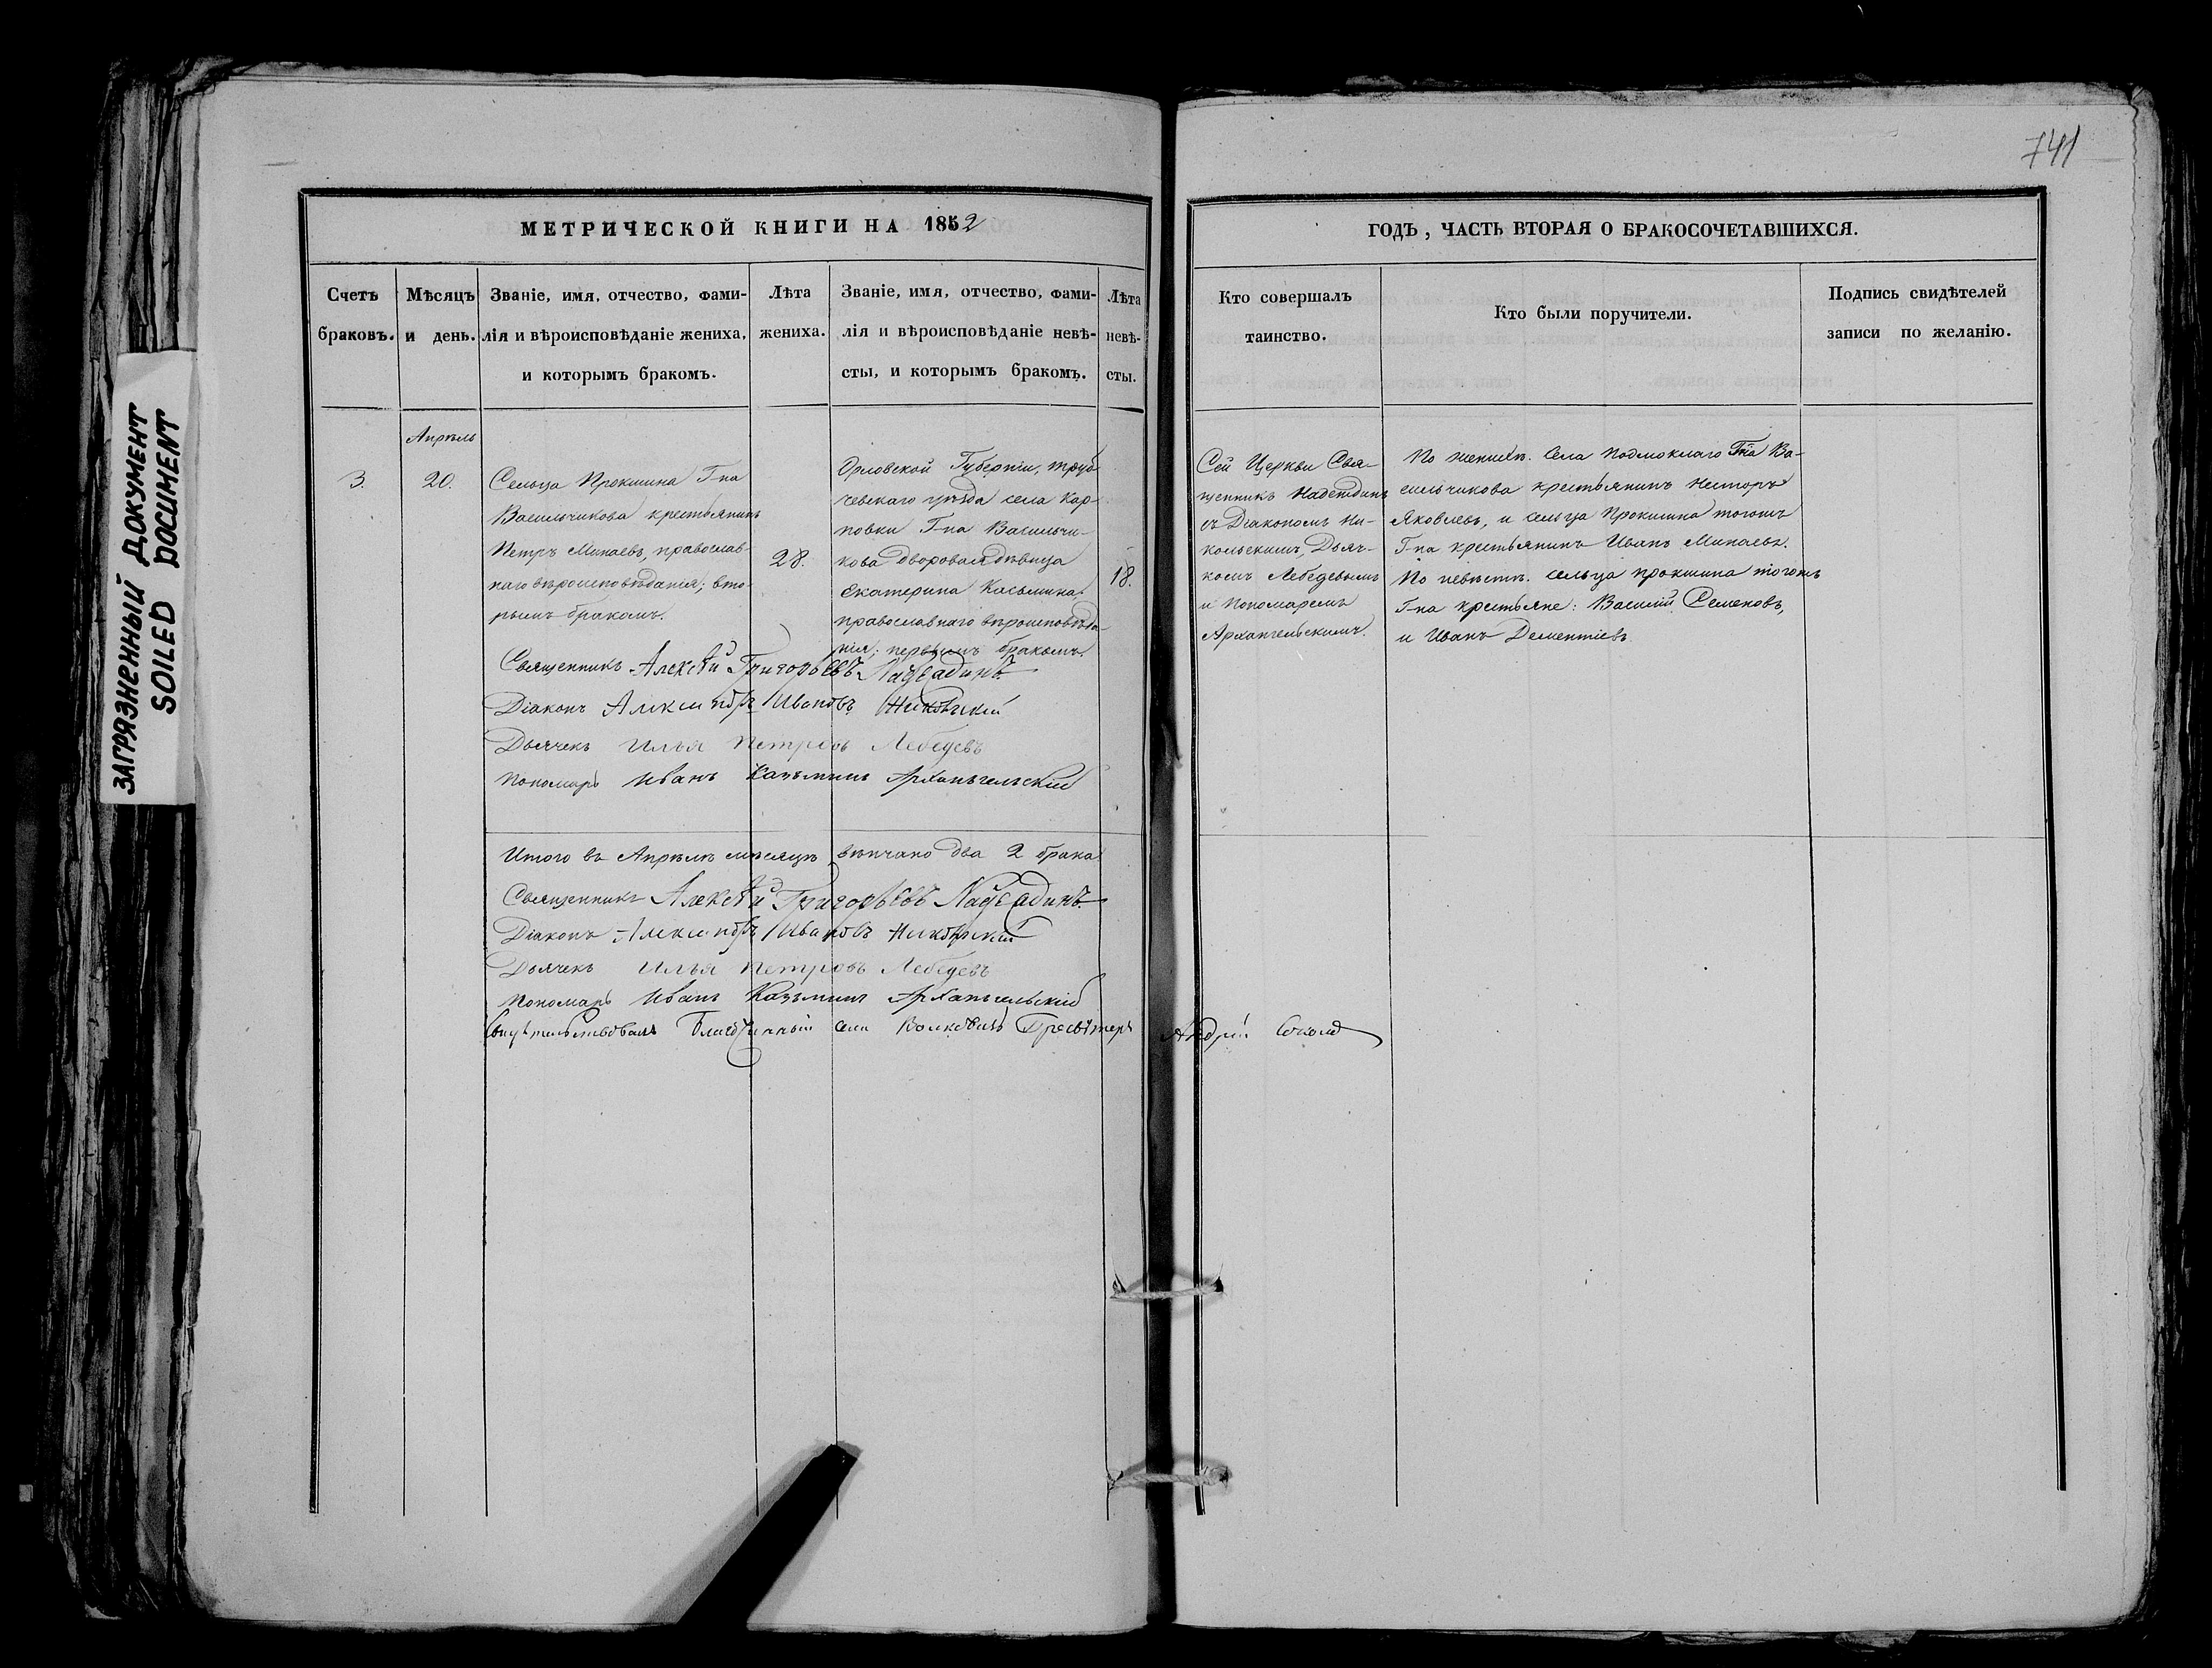 741
МЕТРИЧЕСКОЙ КНИГИ НА 1852
ГОДЪ, ЧАСТЬ ВТОРАЯ О БРАКОСОЧЕТАВШИХСЯ.
Счетъ
браковъ.
Мѣсяцъ
и день.
Званіе, имя, отчество, фами-
лія и вѣроисповѣданіе жениха,
и которымъ бракомъ.
Лѣта
жениха.
Званіе, имя, отчество, фами-
лія и вѣроисповѣданіе невѣ-
сты, и которымъ бракомъ.
Лѣта
невѣ-
сты.
Кто совершалъ
таинство.
Кто были поручители.
Подпись свидѣтелей
записи по желанію.
3.
Апрѣль
20.
Сельца Прокшина Г-на
Васильчикова крестьянинъ
Петръ Минаевъ, православ-
наго вѣроисповѣданія; вто-
рымъ бракомъ.
28.
Орловской Губерніи, Труб-
чевскаго уѣзда села Кар-
повки Г-на Васильчи-
кова дворовая дѣвица
Екатерина Касьмина,
православнаго вѣроисповѣда-
нія; первымъ бракомъ.
18.
Сей Церкви Свя-
щенникъ Надеждинъ
съ Діакономъ Ни-
кольскимъ, Дьяч-
комъ Лебедевымъ
и Пономаремъ
Архангельскимъ.
По женихѣ. Села Подмоклаго Г-на Ва-
сильчикова крестьянинъ Несторъ
Яковлевъ, и сельца Прокшина тогожъ
Г-на крестьянинъ Иванъ Минаевъ.
По невѣстѣ. сельца Прокшина тогожъ
Г-на крестьяне: Василій Семеновъ,
и Иванъ Дементіевъ
Священникъ Алексѣй Григорьевъ Надеждинъ.
Діаконъ Александръ Ивановъ Никольскій
Дьячекъ Илья Петровъ Лебедевъ
Пономарь Иванъ Казьминъ Архангельскій
Итого въ Апрѣлѣ мѣсяцѣ вѣнчано два 2 брака
Священникъ Алексѣй Григорьевъ Надеждинъ.
Діаконъ Александръ Ивановъ Никольскій
Дьячекъ Илья Петровъ Лебедевъ
Пономарь Иванъ Казьминъ Архангельскій
Свидѣтельствовалъ Благочинный села Пресвитеръ Андрей
ЗАГРЯЗНЕННЫЙ ДОКУМЕНТ
SOILED DOCUMENT